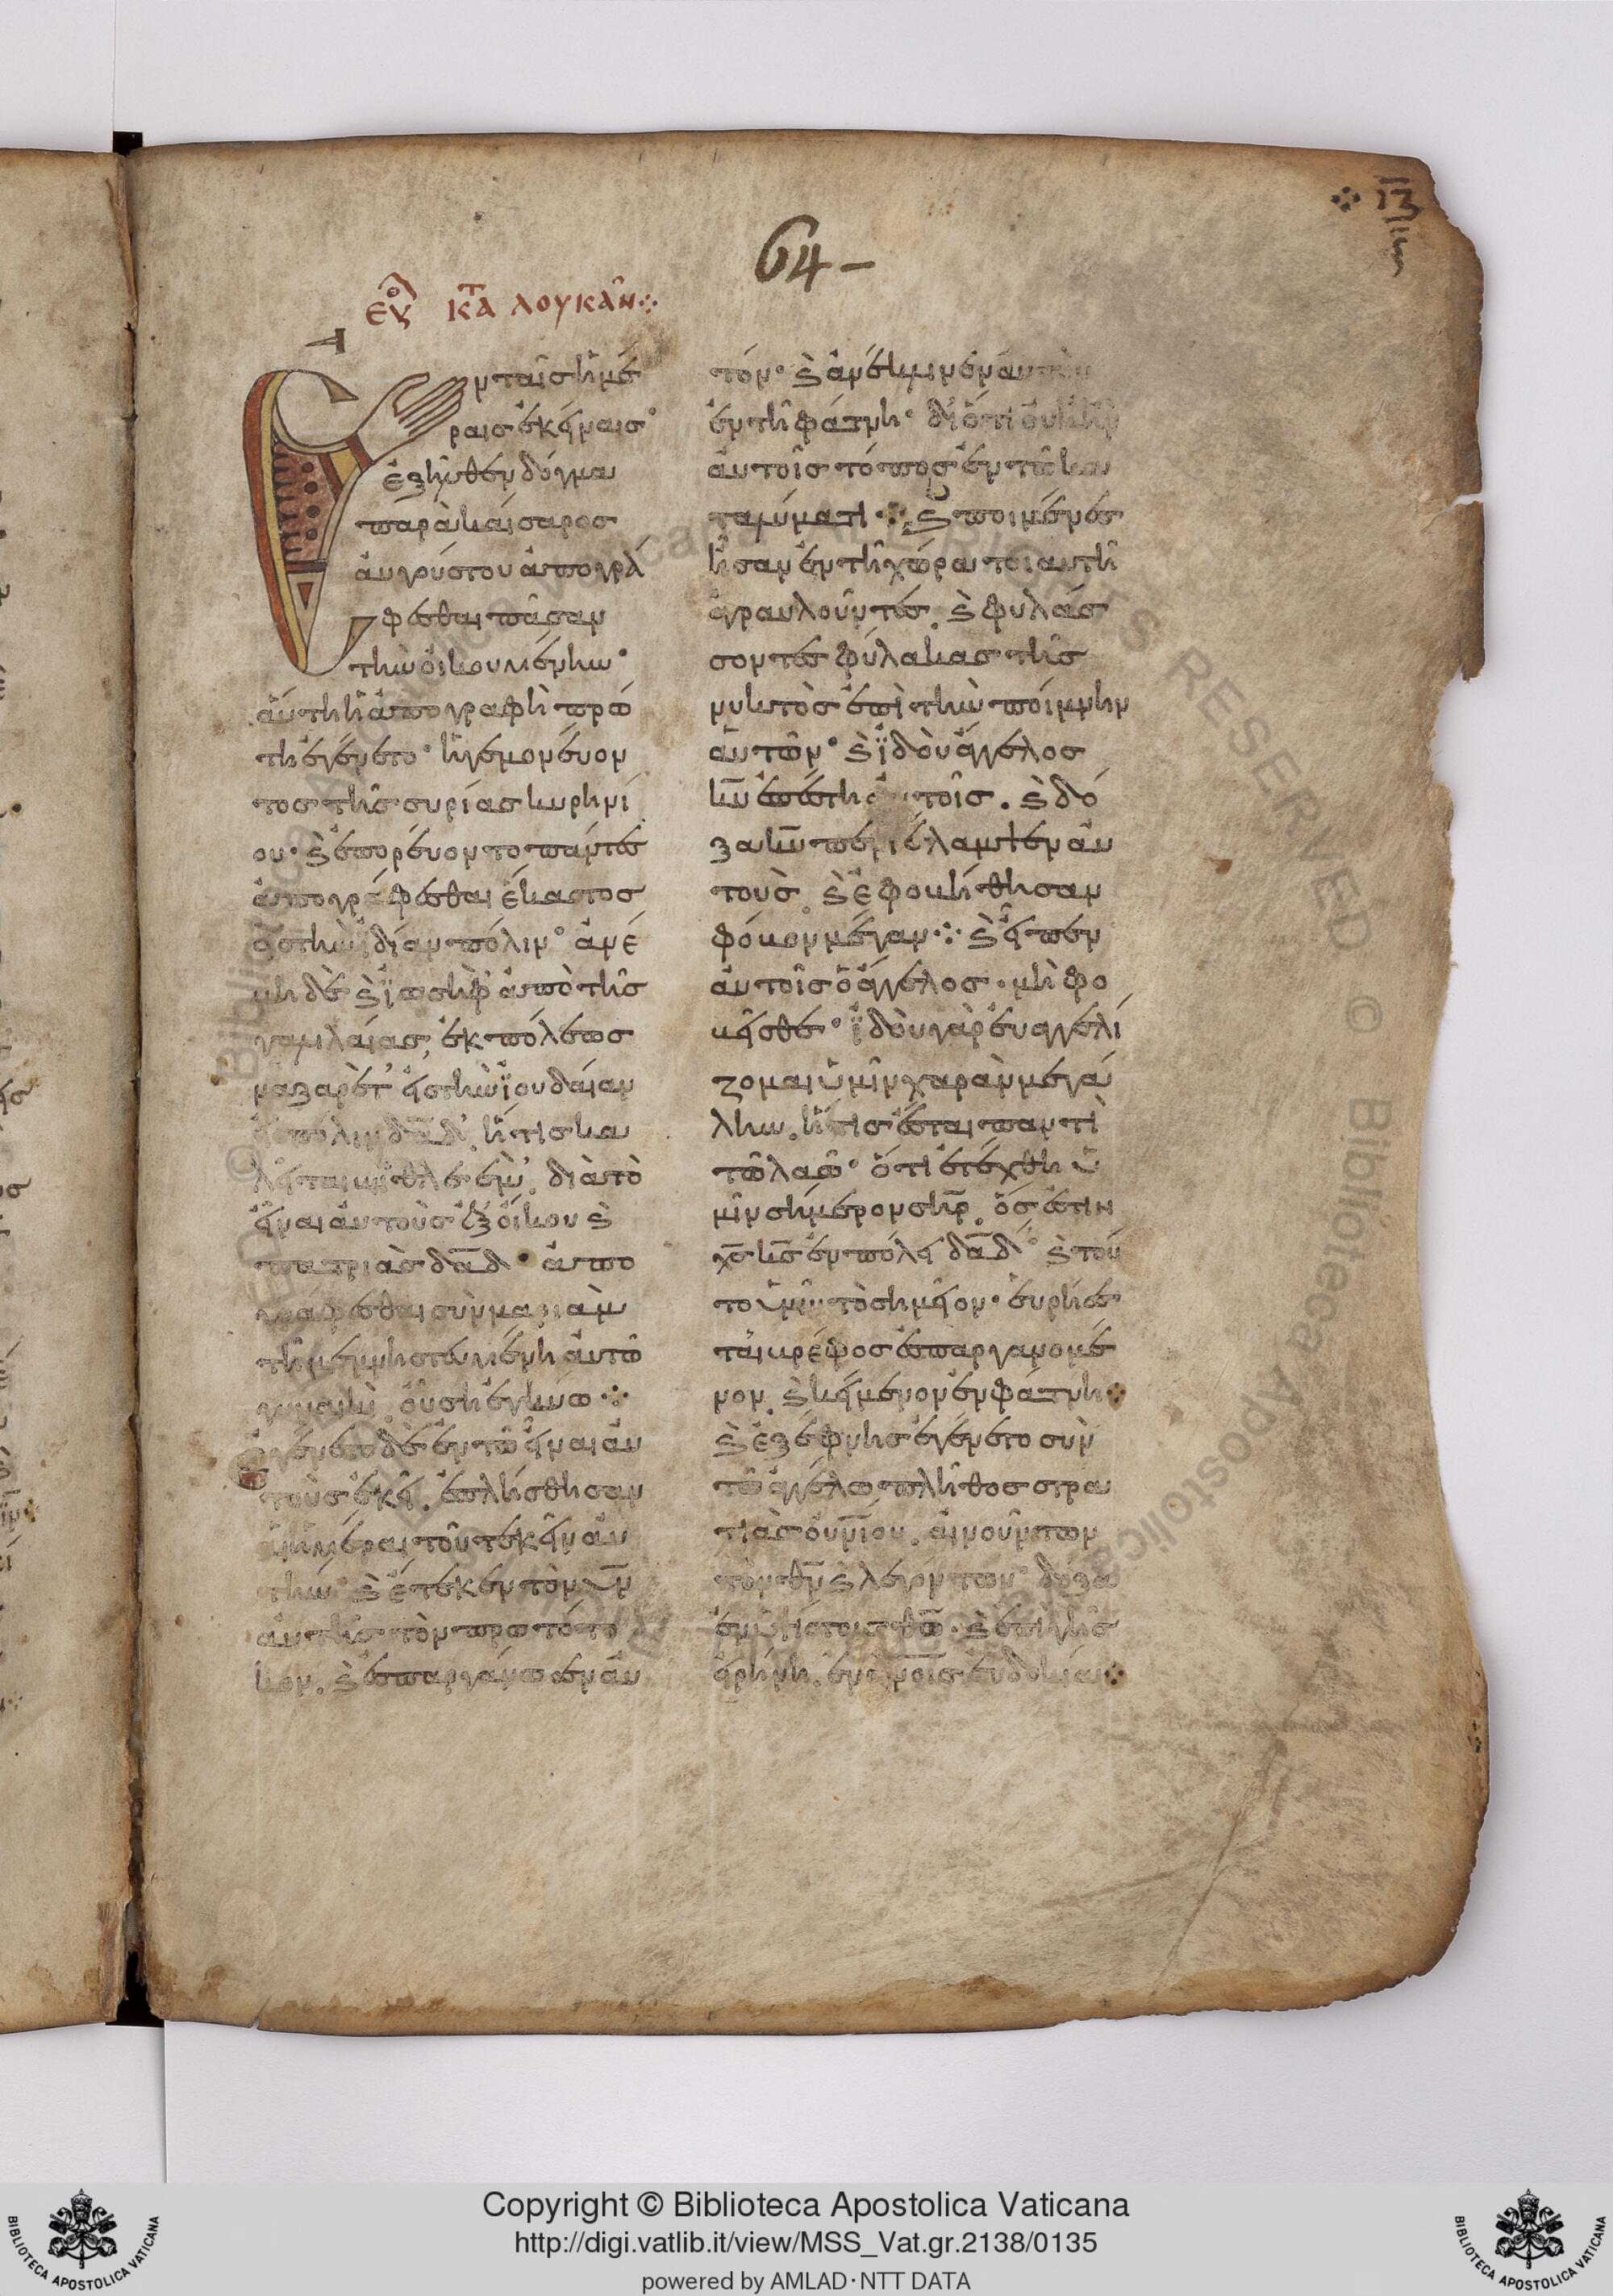 13
64-
ευ κτα λουκαν
Ε
ν ταισ ημέ
ραισ ἐκείναισ
ἐξῆλθεν δόγμα
παρὰ καίσαρος
ἀυγούστου ἀπογρά
φεσθαι πᾶσαν
τὴν ὀικουμένην
ἅυτη ἡ ἀπογραφὴ πρώ
τη ἐγένετο ἡγεμονέυον
τος τῆς συρίας κυρηνί
ου ϗ ἐπορέυοντο πάντες
ἀπογράφεσθαι ἕκαστος
εἰς τὴν ϊδίαν πόλιν ἀνέ
βη δὲ ϗ ϊωσὴφ ἀπὸ τῆς
γαλιλαίας, ἐκ πόλεως
ναζαρὲτ εἰς τὴν ϊουδαίαν
εἰς πόλιν δα̅δ̅ ἥτις κα
λεῖται βηθλεὲμ, διὰ τὸ
εἶναι ἀυτοὺς ἐξ ὄικου ϗ
πατριὰς δα̅δ̅ ἀπο
γράφεσθαι σὺν μαριὰμ
τῆ μεμνηστευμένη ἀυτῶ
γυναικὶ, ὄυση ἐγκύω
ἐγένετο δὲ ἐν τῶ εἶναι ἀυ
τοὺς ἐκεῖ, ἐπλήσθησαν
ἁι ἡμέραι τοῦ τεκεῖν ἀυ
τὴν ϗ ἔτεκεν τὸν υ̅ν̅
ἀυτῆς τὸν πρωτότο
κον, ϗ ἐσπαργάνωσεν ἀυ
τόν ϗ ἀνέκλινεν ἀυτὸν
ἐν τῆ φάτνη διότι ὀυκ ἦν
ἀυτοῖς τόπος ἐν τῶ κα
ταλύματι ϗ ποιμένες
ἦσαν ἐν τῆ χώρα τοιαυτῆ
ἀγραυλοῦντες, ϗ φυλάσ
σοντες φύλακας τῆς
νυκτὸς ἐπὶ τὴν ποίμνην
ἀυτῶν ϗ ϊδὸυ ἄγγελος
κ̅υ̅ ἐπέστη ἀυτοῖς. ϗ δό
ξα κ̅υ̅ περιέλαμψεν ἀυ
τοὺς, ϗ ἐφοβήθησαν
φόβον μέγαν ϗ εἶπεν
ἀυτοῖς ὁ ἄγγελος. μὴ φο
βεῖσθε ϊδὸυ γὰρ ἐυαγγελί
ζομαι ὑμῖν χαρὰν μεγά
λην, ἥτις ἔσται παντὶ
τῶ λαῶ ὅτι ἐτέχθη ὑ
μῖν σήμερον σηρ, ὅς ἐστιν
χ̅ς̅ κ̅ς̅ ἐν πόλει δα̅δ̅ ϗ τοῦ
το ὑμῖν τὸ σημεῖον ἑυρήσε
ται βρέφος ἐσπαργανομέ
νον, ϗ κείμενον ἐν φάτνη
ϗ ἐξέφνης ἐγένετο σὺν
τῶ ἀγγέλω πλῆθος στρα
τιὰς ὀυν̅ίου, ἀινούντων
τὸν θ̅ν̅ ϗ λεγόντων δόξα
ἐν ὑψίστοις θ̅ω̅. ϗ ἐπὶ γῆς
εἰρήνη, ἐν ἀ̅ν̅οις ἐυδοκία
Copyright © Biblioteca Apostolica Vaticana
http://digi.vatlib.it/view/MSS_Vat.gr.2138/0135
powered by AMLAD·NTT DATA
BIBLIOTECA APOSTOLICA VATICANA
BIBLIOTECA APOSTOLICA VATICANA